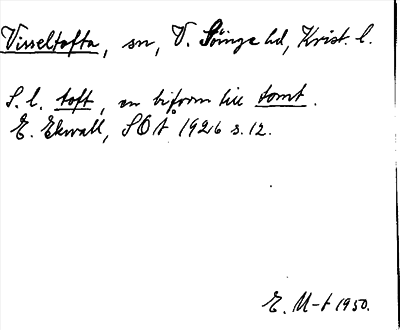 Visseltofta, sn, V. Göinge hd, Krist. l.
S. l. toft, en biform till tomt.
E. Ekwall, SOÅ 1926 s. 12.
E. M-t 1950.